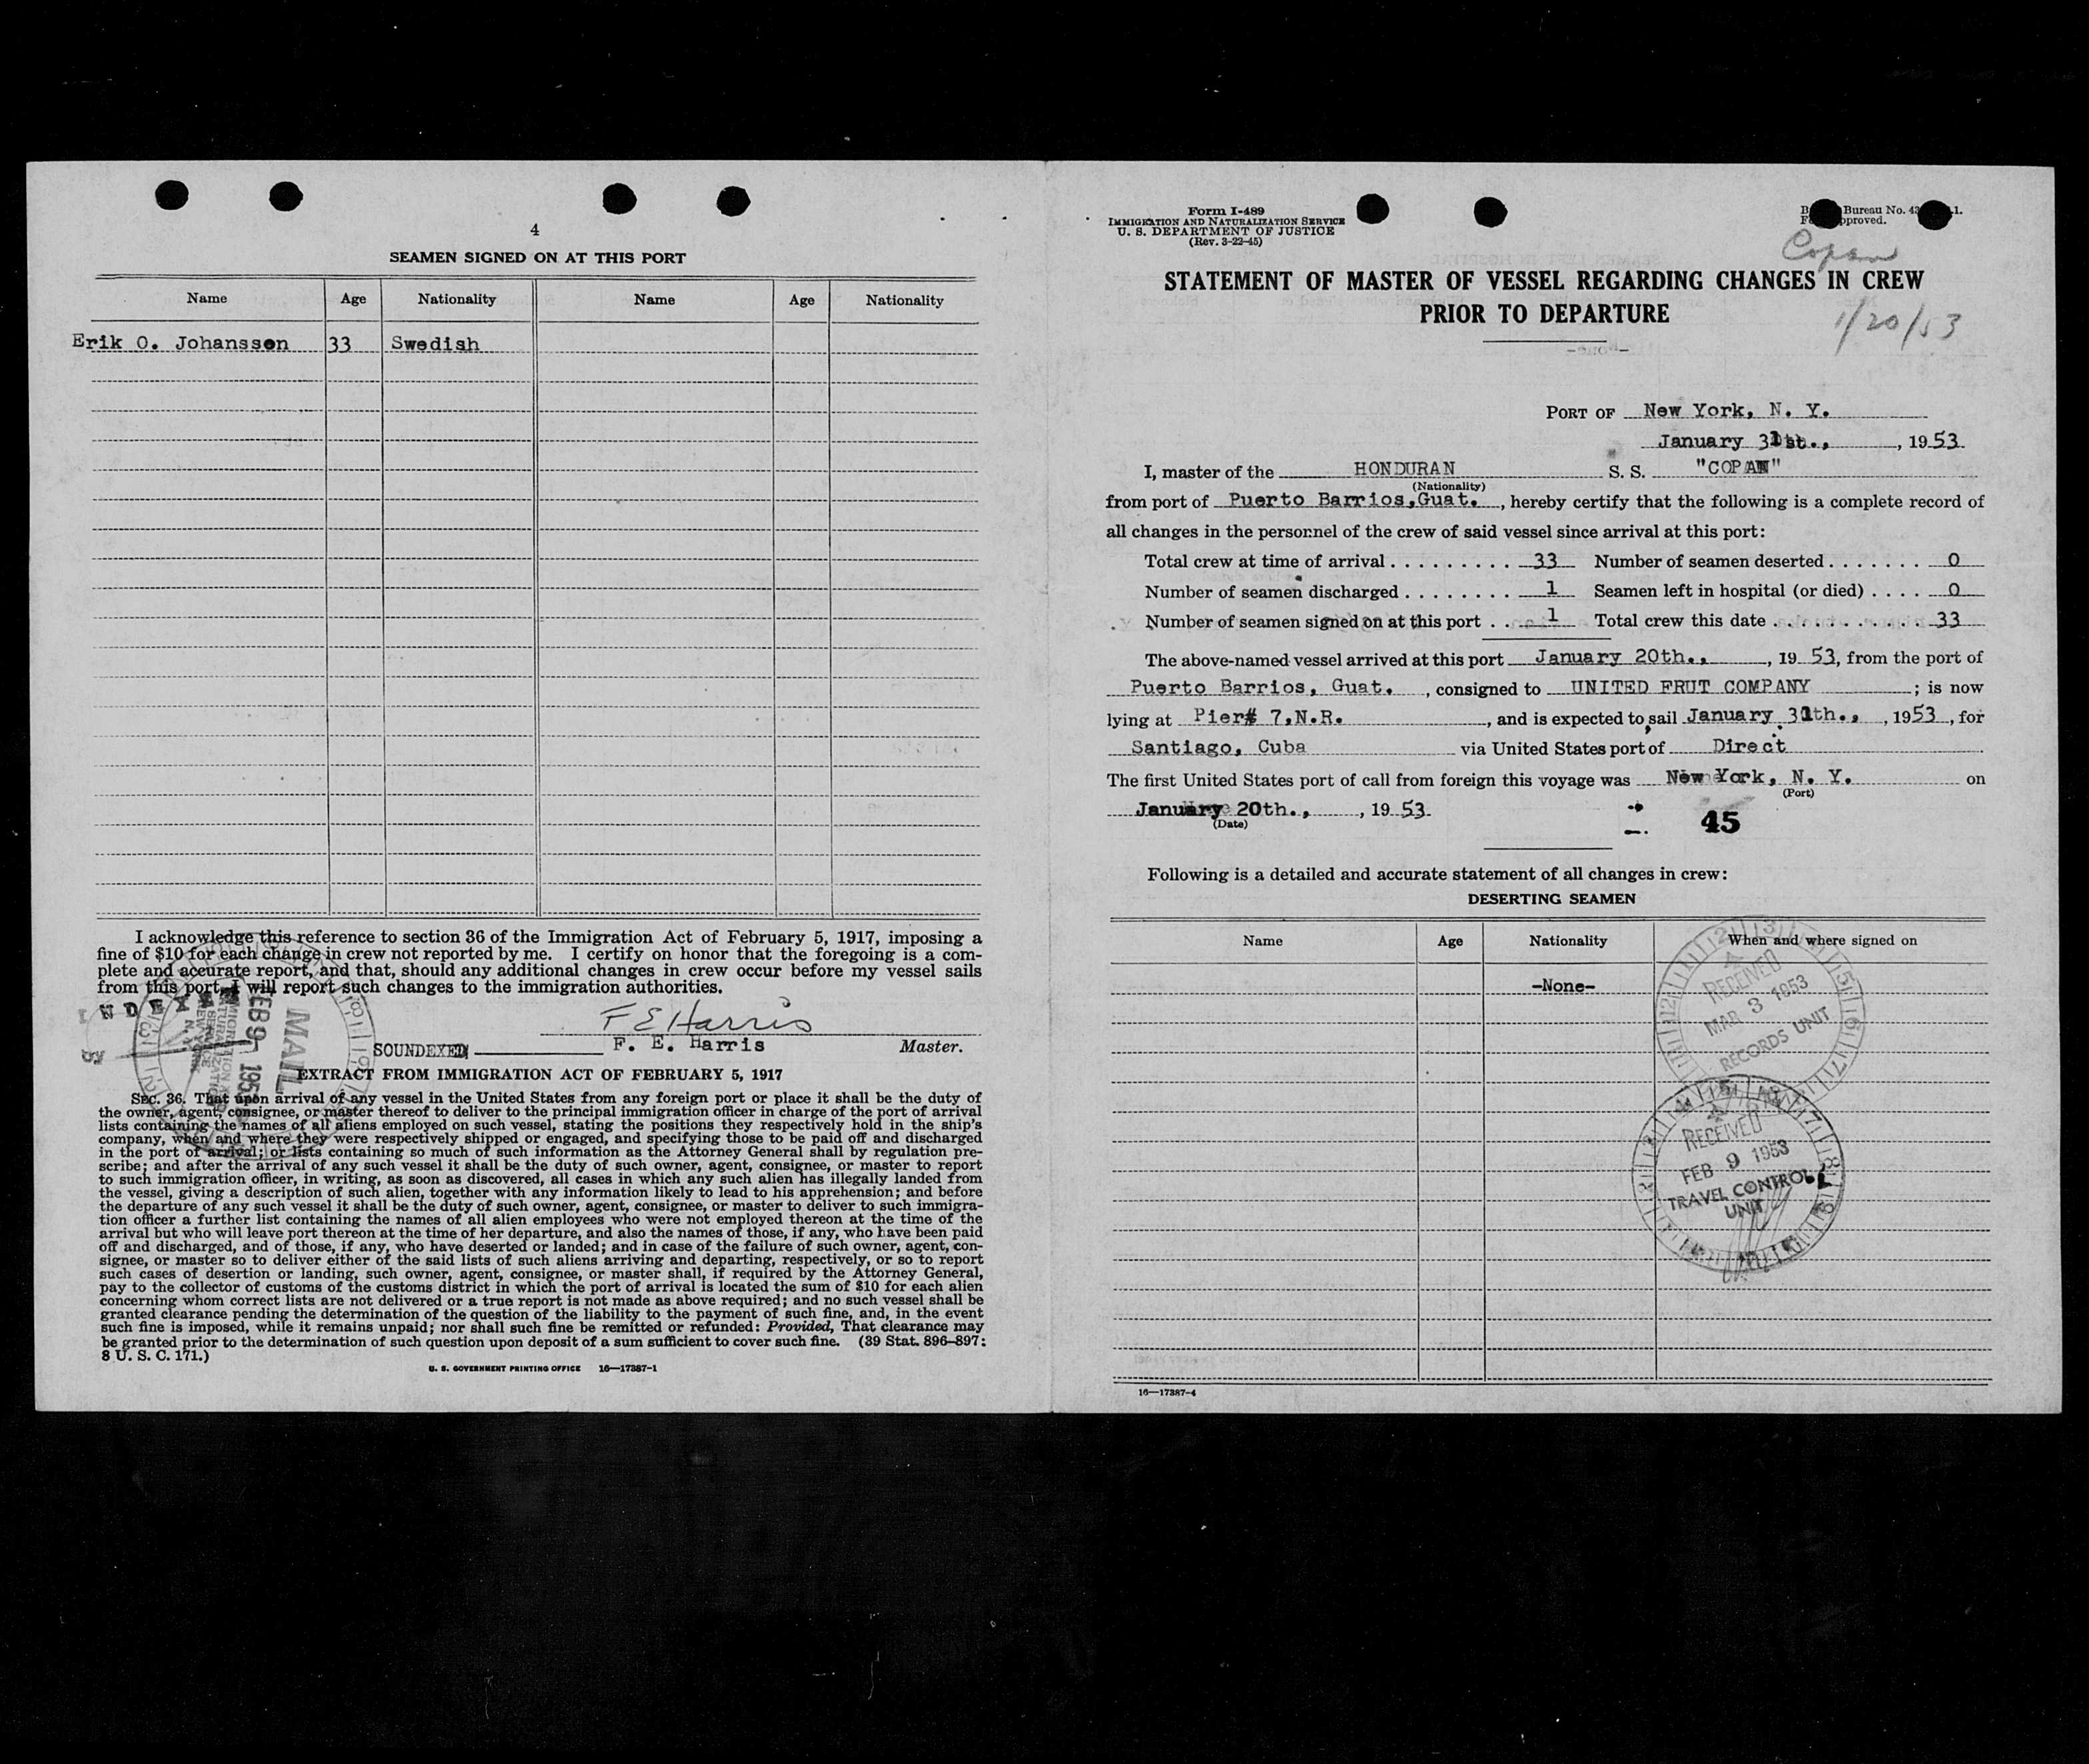 4
SEAMEN SIGNED ON AT THIS PORT
Name Age Nationality Name Age Nationality
Erik O. Johansson 33 Swedish
I acknowledge this reference to section 36 of the Immigration Act of February 5, 1917, imposing a
fine of $10 for each change in crew not reported by me. I certify on honor that the foregoing is a com-
plete and accurate report, and that, should any additional changes in crew occur before my vessel sails
from this port, I will report such changes to the immigration authorities.
INDEXED
BY
MAIL
FEB 9 195
F E Harris
SOUNDEXED F. E. Harris Master.
EXTRACT FROM IMMIGRATION ACT OF FEBRUARY 5, 1917
SEC. 36. That upon arrival of any vessel in the United States from any foreign port or place it shall be the duty of
the owner, agent, consignee, or master thereof to deliver to the principal immigration officer in charge of the port of arrival
lists containing the names of all aliens employed on such vessel, stating the positions they respectively hold in the ship's
company, when and where they were respectively shipped or engaged, and specifying those to be paid off and discharged
in the port of arrival; or lists containing so much of such information as the Attorney General shall by regulation pre-
scribe; and after the arrival of any such vessel it shall be the duty of such owner, agent, consignee, or master to report
to such immigration officer, in writing, as soon as discovered, all cases in which any such alien has illegally landed from
the vessel, giving a description of such alien, together with any information likely to lead to his apprehension; and before
the departure of any such vessel it shall be the duty of such owner, agent, consignee, or master to deliver to such immigra-
tion officer a further list containing the names of all alien employees who were not employed thereon at the time of the
arrival but who will leave port thereon at the time of her departure, and also the names of those, if any, who have been paid
off and discharged, and of those, if any, who have deserted or landed; and in case of the failure of such owner, agent, con-
signee, or master so to deliver either of the said lists of such aliens arriving and departing, respectively, or so to report
such cases of desertion or landing, such owner, agent, consignee, or master shall, if required by the Attorney General,
pay to the collector of customs of the customs district in which the port of arrival is located the sum of $10 for each alien
concerning whom correct lists are not delivered or a true report is not made as above required; and no such vessel shall be
granted clearance pending the determination of the question of the liability to the payment of such fine, and, in the event
such fine is imposed, while it remains unpaid; nor shall such fine be remitted or refunded: Provided, That clearance may
be granted prior to the determination of such question upon deposit of a sum sufficient to cover such fine. (39 Stat. 896–897;
8 U. S. C. 171.)
U. S. GOVERNMENT PRINTING OFFICE 16—17387-1
Form I-489
IMMIGRATION AND NATURALIZATION SERVICE
U. S. DEPARTMENT OF JUSTICE
(Rev. 3-22-45)
Bureau No. 43
pproved.
Copan
STATEMENT OF MASTER OF VESSEL REGARDING CHANGES IN CREW
PRIOR TO DEPARTURE
1/20/53
PORT OF New York, N. Y.
January 31st., , 1953
I, master of the HONDURAN S. S. "COPAN"
(Nationality)
from port of Puerto Barrios,Guat. , hereby certify that the following is a complete record of
all changes in the personnel of the crew of said vessel since arrival at this port:
Total crew at time of arrival . . . . . . . . . 33 Number of seamen deserted . . . . . . . 0
Number of seamen discharged . . . . . . . . 1 Seamen left in hospital (or died) . . . . 0
Number of seamen signed on at this port . . 1 Total crew this date . . . . . . . . . . . 33
The above-named vessel arrived at this port January 20th., , 19 53, from the port of
Puerto Barrios, Guat. , consigned to UNITED FRUT COMPANY ; is now
lying at Pier# 7,N.R. , and is expected to sail January 31th., , 1953 , for
Santiago, Cuba via United States port of Direct
The first United States port of call from foreign this voyage was New York, N. Y. on
(Port)
January 20th., , 19 53.
(Date)
45
Following is a detailed and accurate statement of all changes in crew:
DESERTING SEAMEN
Name Age Nationality When and where signed on
-None-
RECEIVED
MAR 3 1953
RECORDS UNIT
RECEIVED
FEB 9 1953
TRAVEL CONTROL
UNIT
16—17387-4